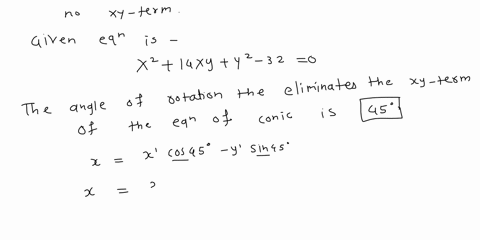 no xy-term.
Given eqn is -
x² + 14xy + y² - 32 = 0
The angle of rotation the eliminates the xy-term
of the eqn of conic is 45°
x = x' cos45° - y' sin45°
x =